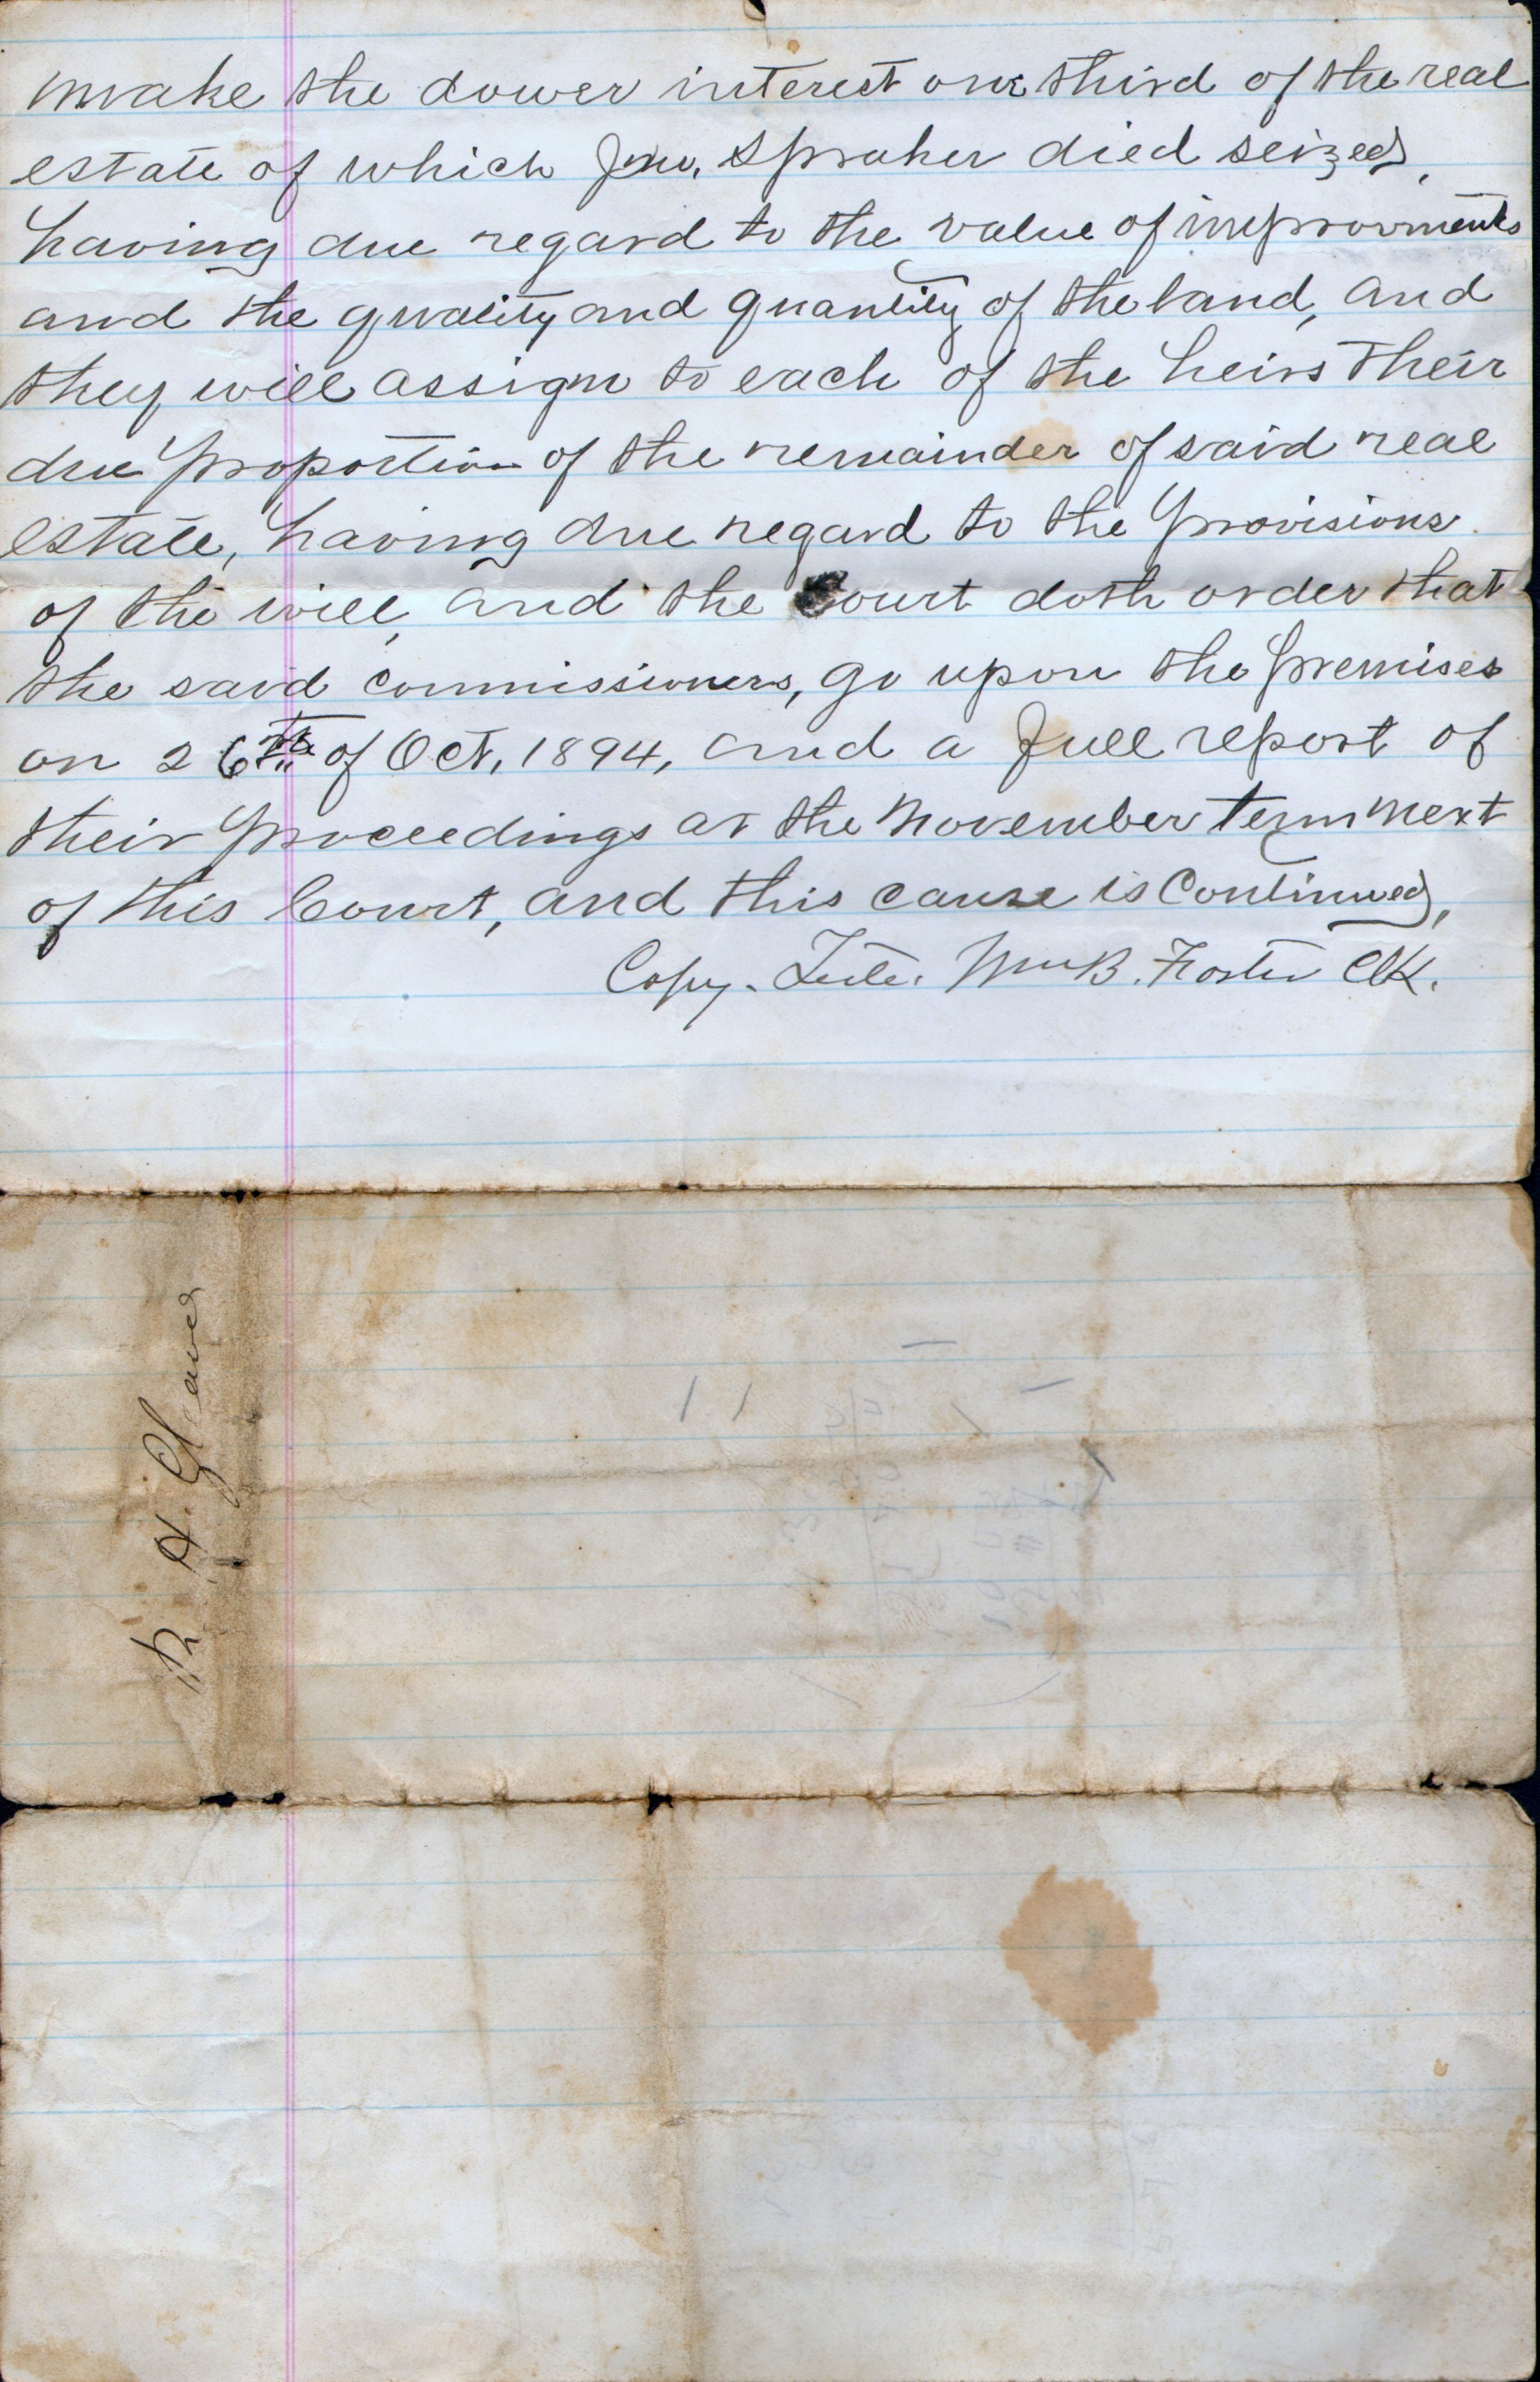 make the dower interest one third of the real
estate of which Jno. Spraker died seized,
having due regard to the value of improvments
and the quality and quantity of the land, and
they will assign to each of the heirs their
due proportion of the remainder of said real
estate, having due regard to the provisions
of the will, and the Court doth order that
the said commissioners, go upon the premises
on 26th of Oct, 1894, and a full report of
their proceedings at the November term next
of this Court, and this cause is Continued,
Copy. Teste. Wm B. Foster Clk.
H. Cleaves